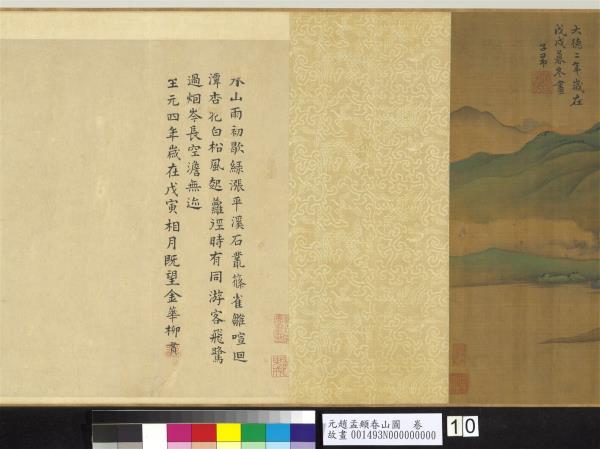 大德二年歲在
戊戌暮冬畫
子昂
山雨初歇綠漲平溪石叢篠雀雛喧迴
潭杏花白松風起蘿徑時有同游客飛鷺
過烟岑長空澹無迹
至元四年歲在戊寅相月既望金華柳貫
元趙孟頫春山圖　卷
故畫 001493N000000000
10